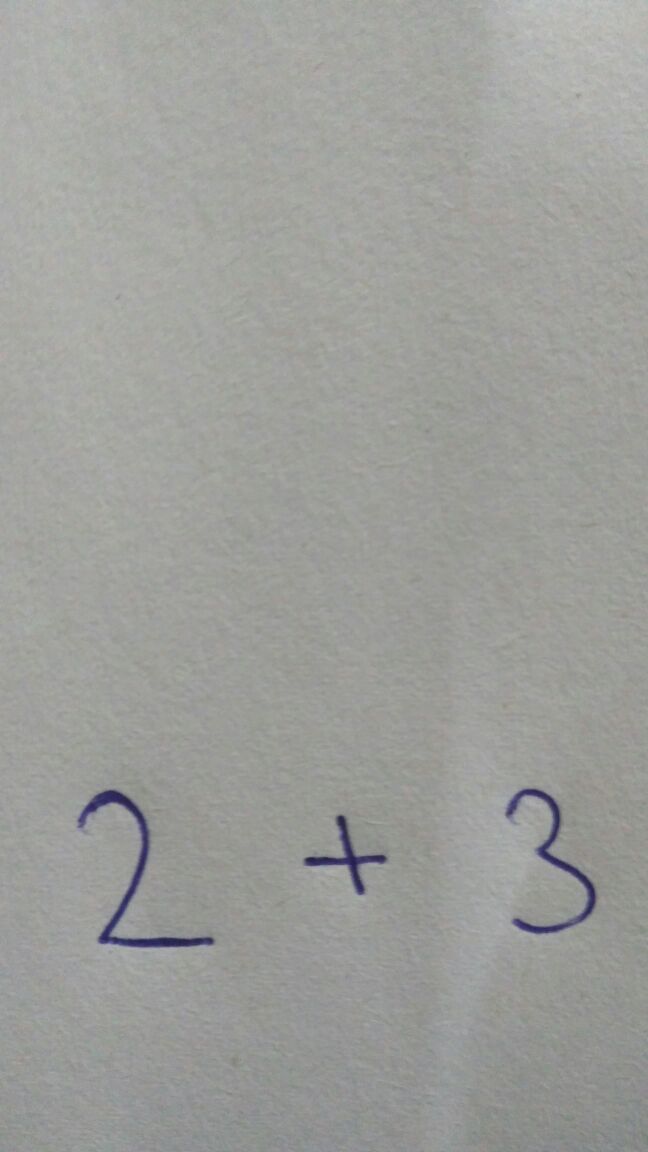 2 + 3